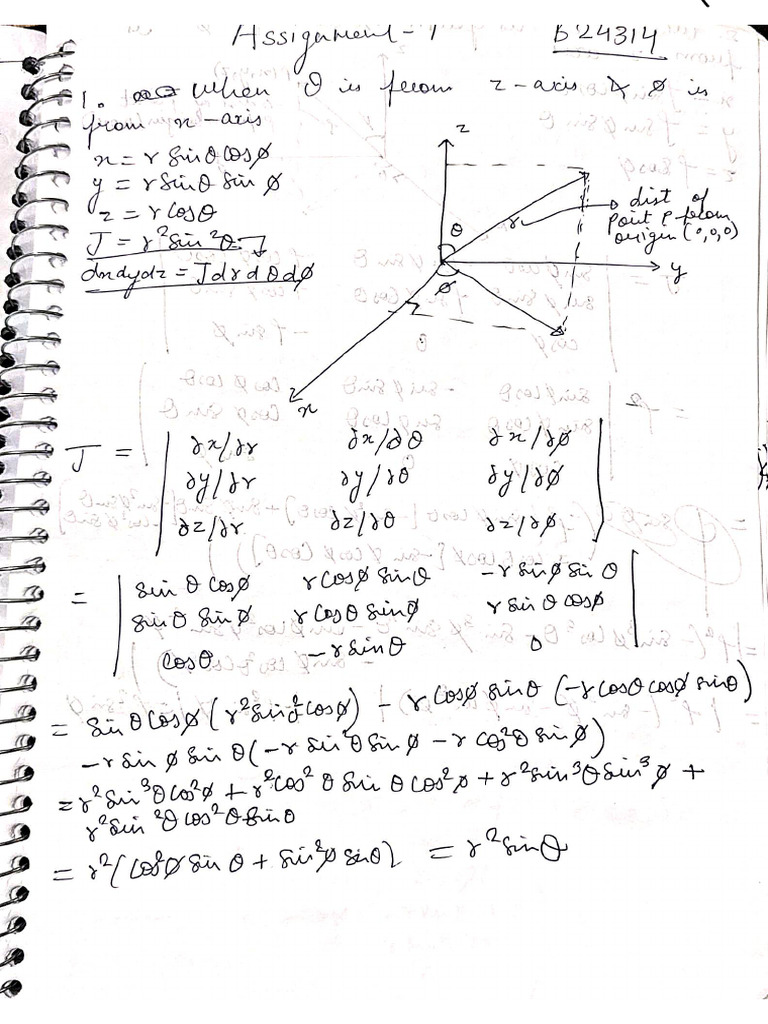 Assignment - 1
B24314
1. When θ is from z-axis & ϕ is
from x-axis
x = r sinθ cosϕ
y = r sinθ sin ϕ
z = r cosθ
J = r² sin²θ
dxdydz = J dr dθ dϕ
z
θ
r
→ dist of
point P from
origin (0,0,0)
y
ϕ
x
J = | ∂x/∂r ∂x/∂θ ∂x/∂ϕ |
| ∂y/∂r ∂y/∂θ ∂y/∂ϕ |
| ∂z/∂r ∂z/∂θ ∂z/∂ϕ |
= | sin θ cosϕ r cosϕ sinθ -r sinϕ sin θ |
| sinθ sinϕ r cosθ sinϕ r sin θ cosϕ |
| cosθ -r sinθ 0 |
= sinθ cosϕ (r² sin²θ cosϕ) - r cosϕ sinθ (-r cosθ cosϕ sinθ)
-r sin ϕ sin θ (-r sin²θ sin ϕ - r cos²θ sin ϕ)
= r² sin³θ cos²ϕ + r² cos² θ sin θ cos²ϕ + r² sin³θ sin³ ϕ +
r² sin ²θ cos²θ sinθ
= r² (cos²ϕ sin θ + sin²ϕ sinθ) = r² sinθ